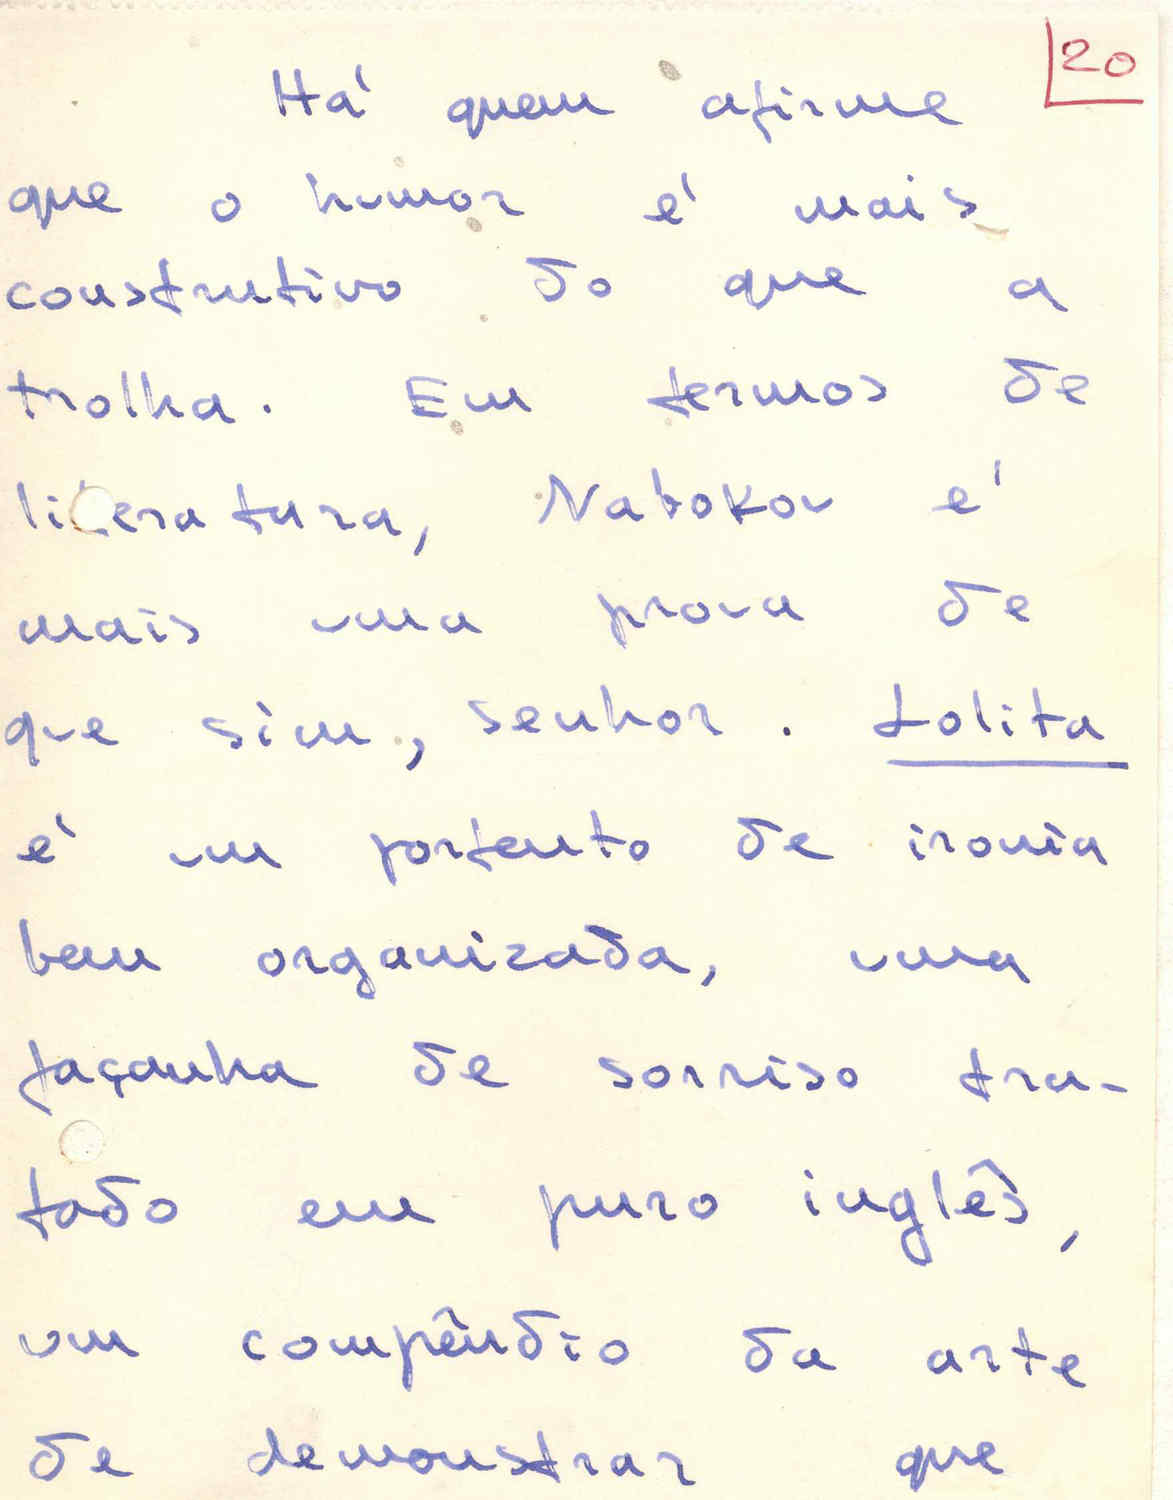 20
Há quem afirme
que o humor é mais
construtivo do que a
trolha. Em termos de
literatura, Nabokov é
mais uma prova de
que sim, senhor. Lolita
é um portento de ironia
bem organizada, uma
façanha de sorriso tra-
tado em puro inglês,
um compêndio da arte
de demonstrar que